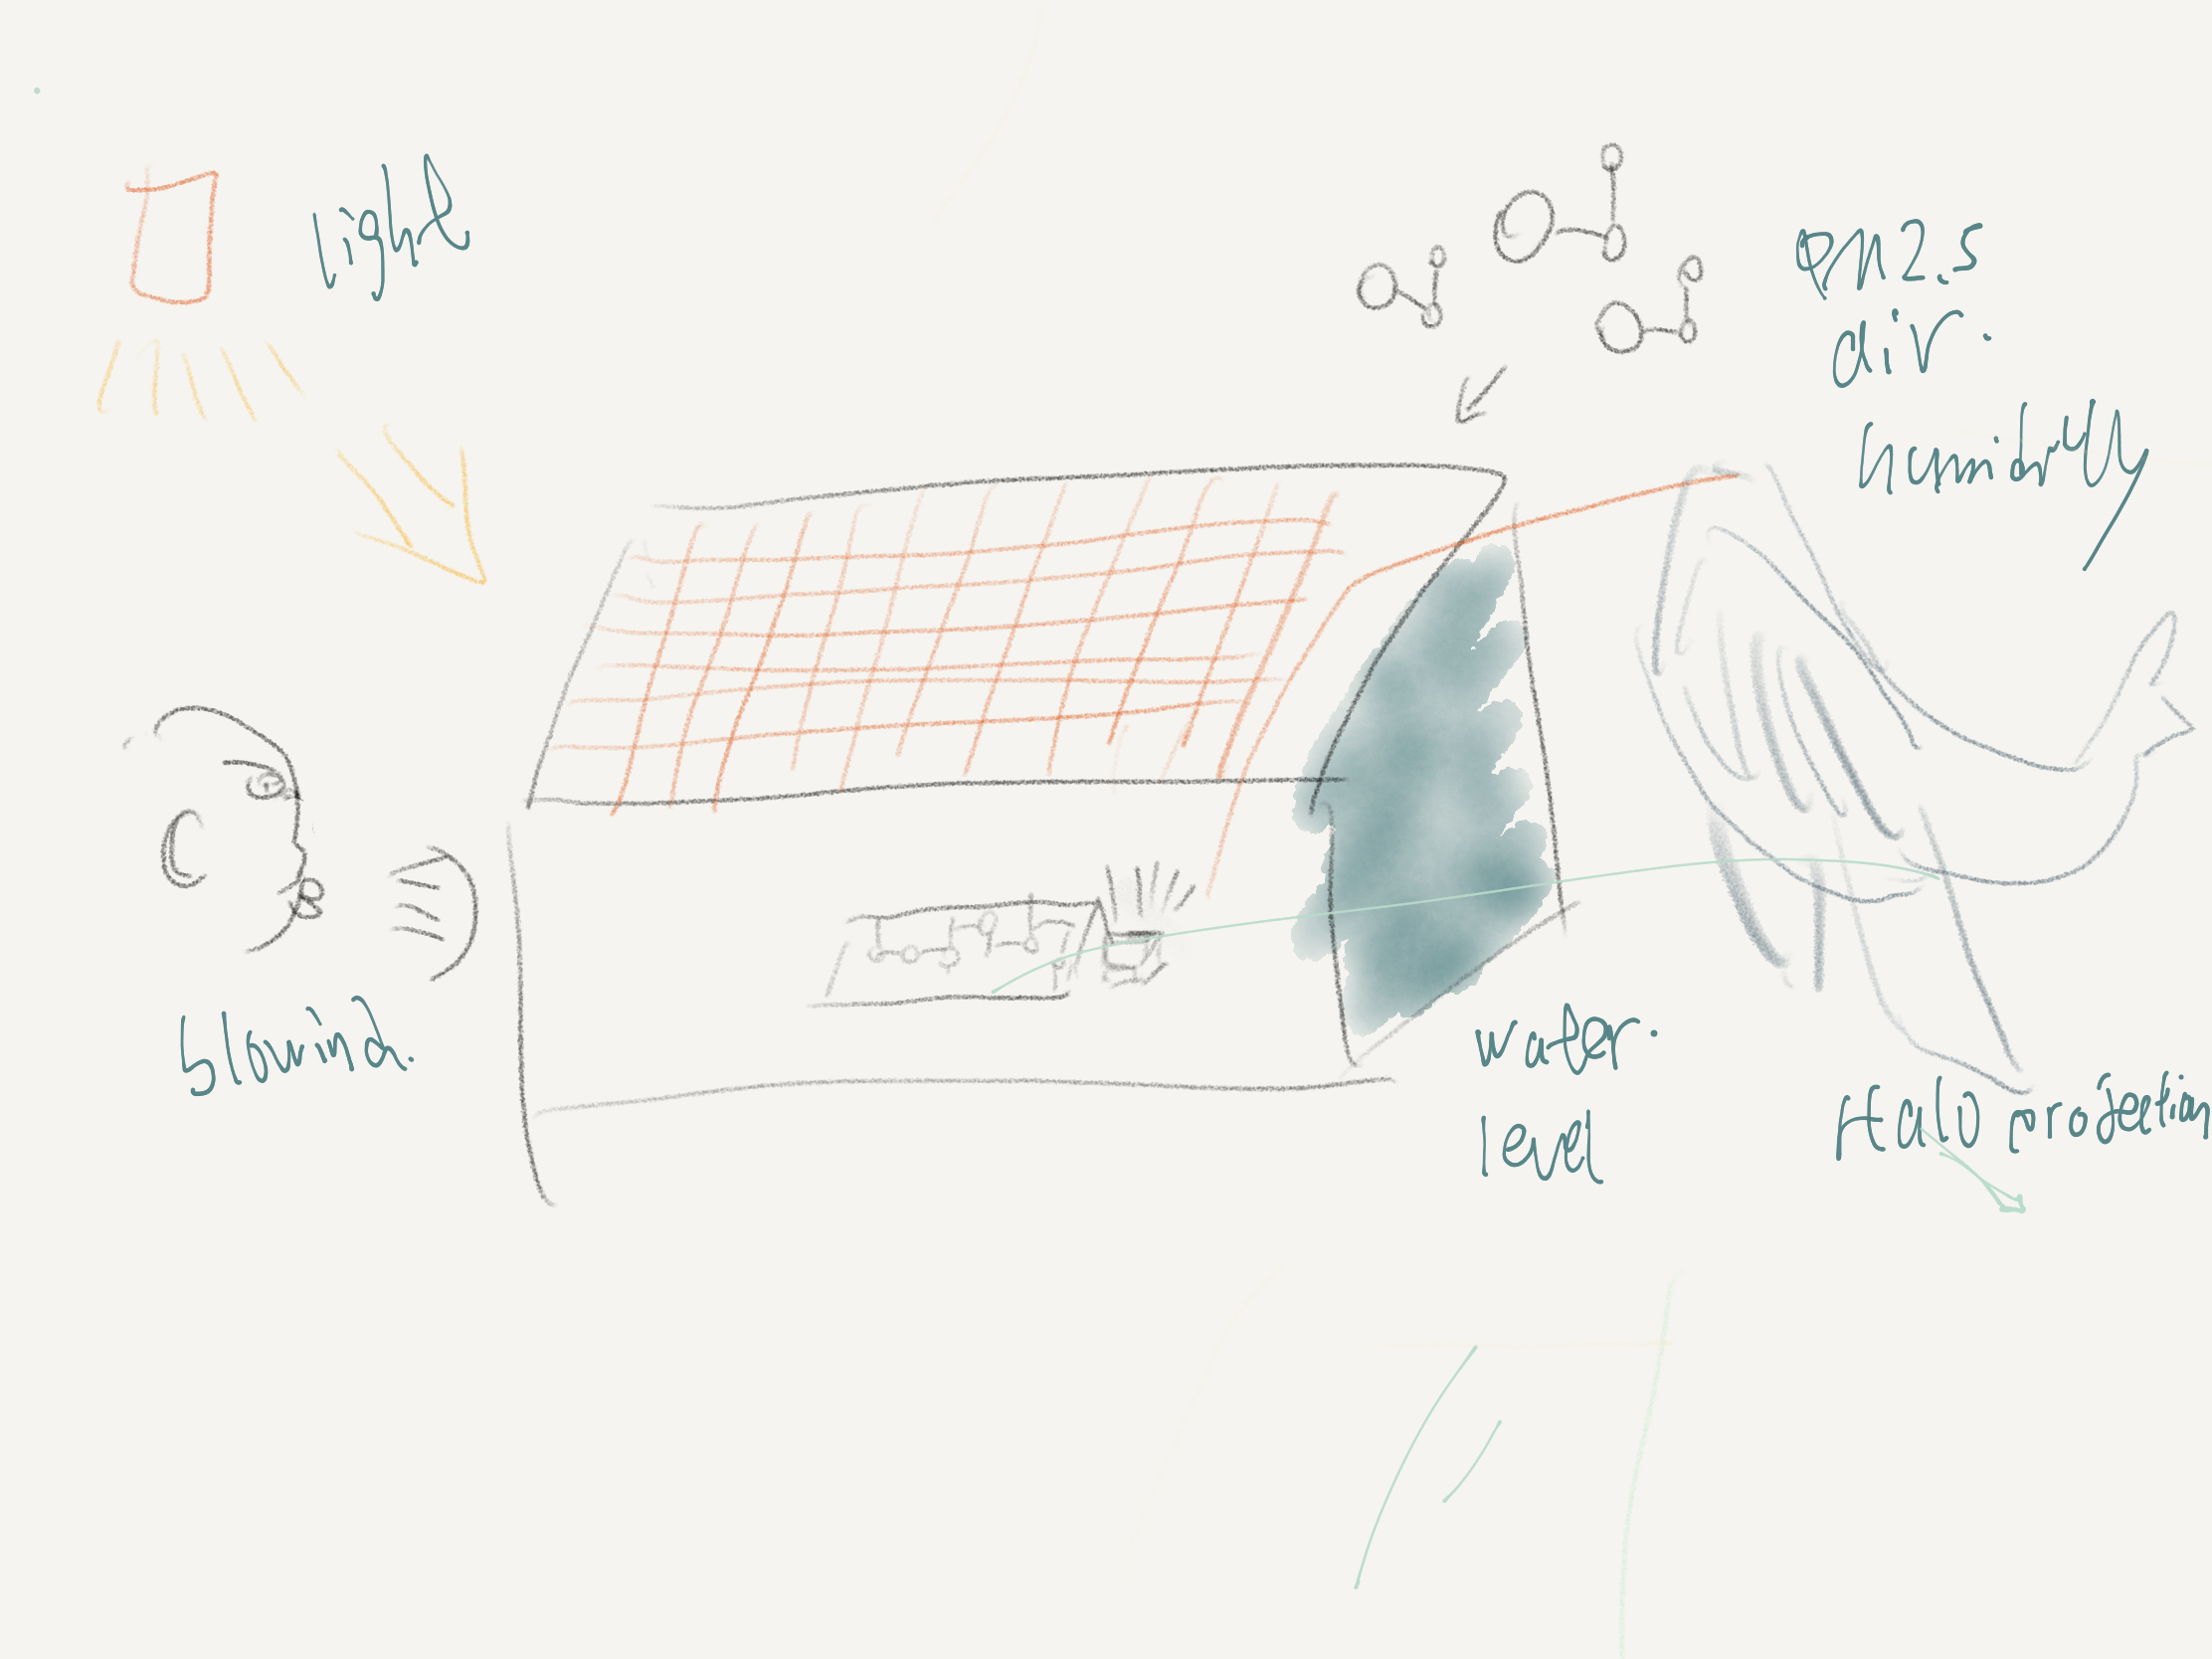 light
PM2.5
air.
humidity
blowing.
water.
level
Halo projection